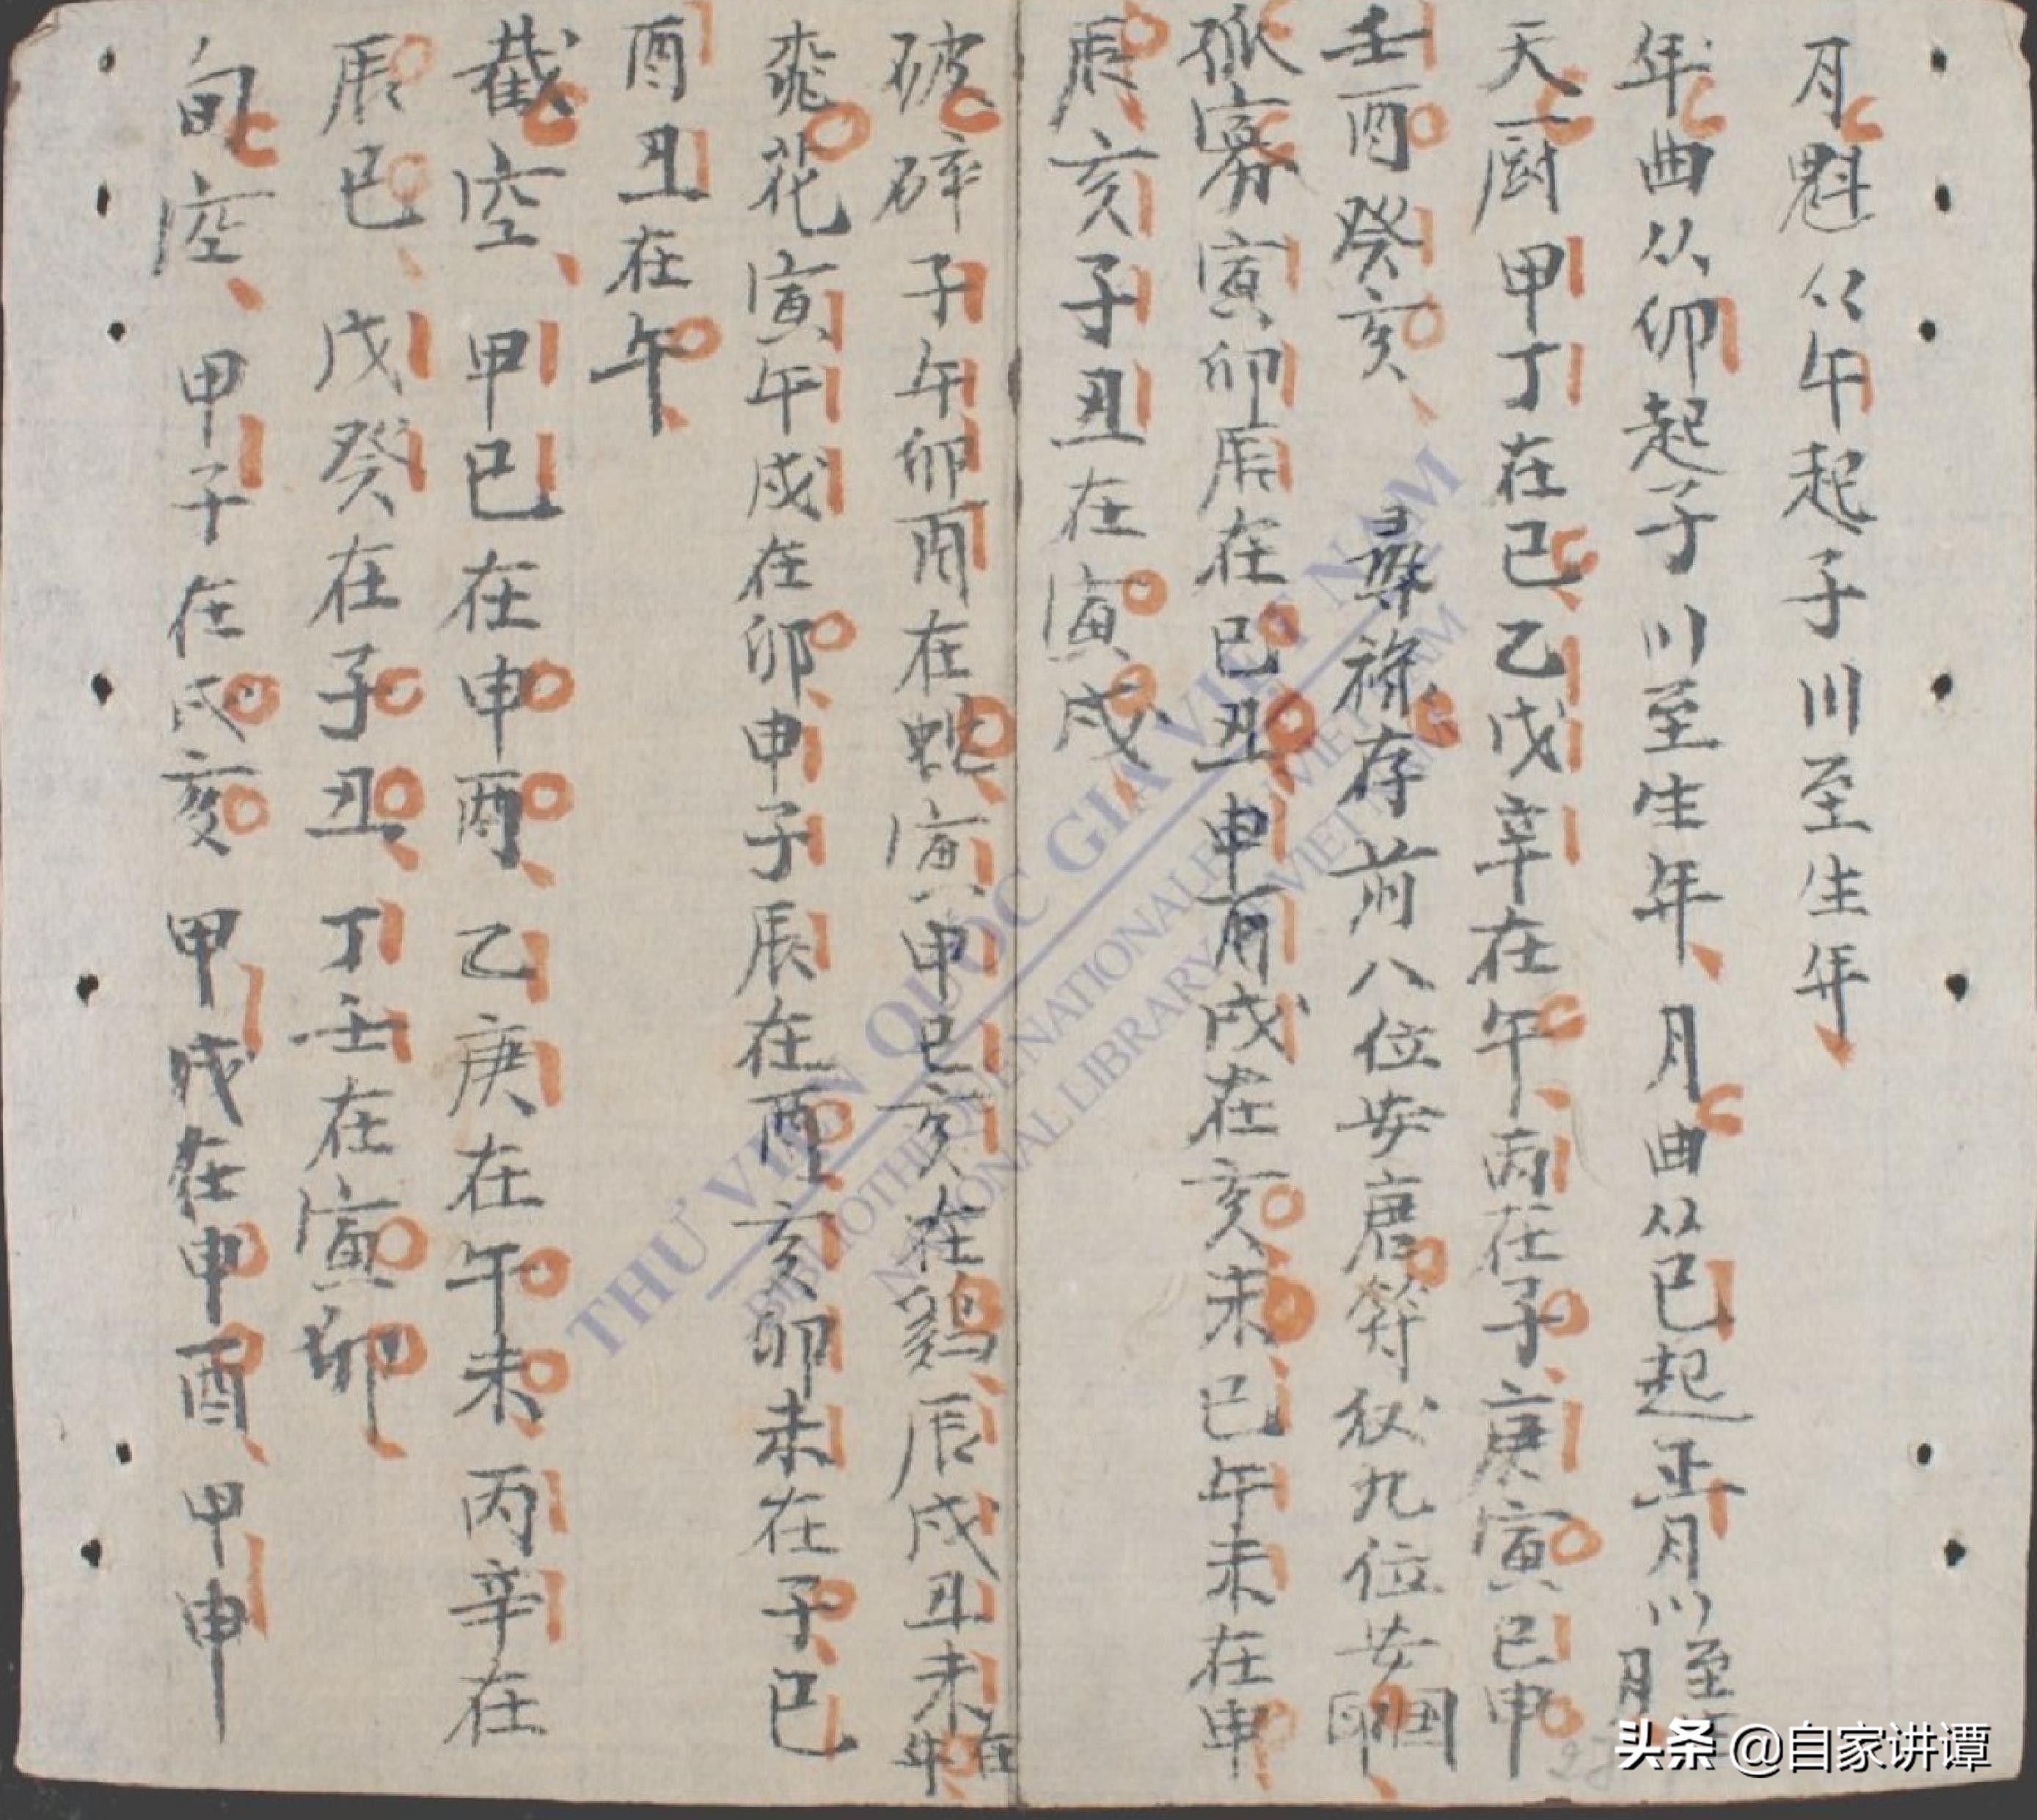 月魁从午起子川至生年
年曲从卯起子川至生年月曲从巳起正月川至生月
天厨甲丁在巳乙戊辛在午丙在子庚寅己申
壬酉癸亥 尋祿存前八位安唐符秋九位安国印
孤寡寅卯辰在巳丑申酉戌在亥未巳午未在申
辰亥子丑在寅戌
破碎子午卯酉在蛇寅申巳亥在鷄辰戌丑未在牛
桃花寅午戌在卯申子辰在酉亥卯未在子巳
酉丑在午
截空甲己在申酉乙庚在午未丙辛在
辰巳戊癸在子丑丁壬在寅卯
旬空甲子在戌亥甲戌在申酉甲申
THƯ VIỆN QUỐC GIA VIỆT NAM
BIBLIOTHEQUE NATIONALE VIETNAM
NATIONAL LIBRARY VIETNAM
头条 @自家讲谭